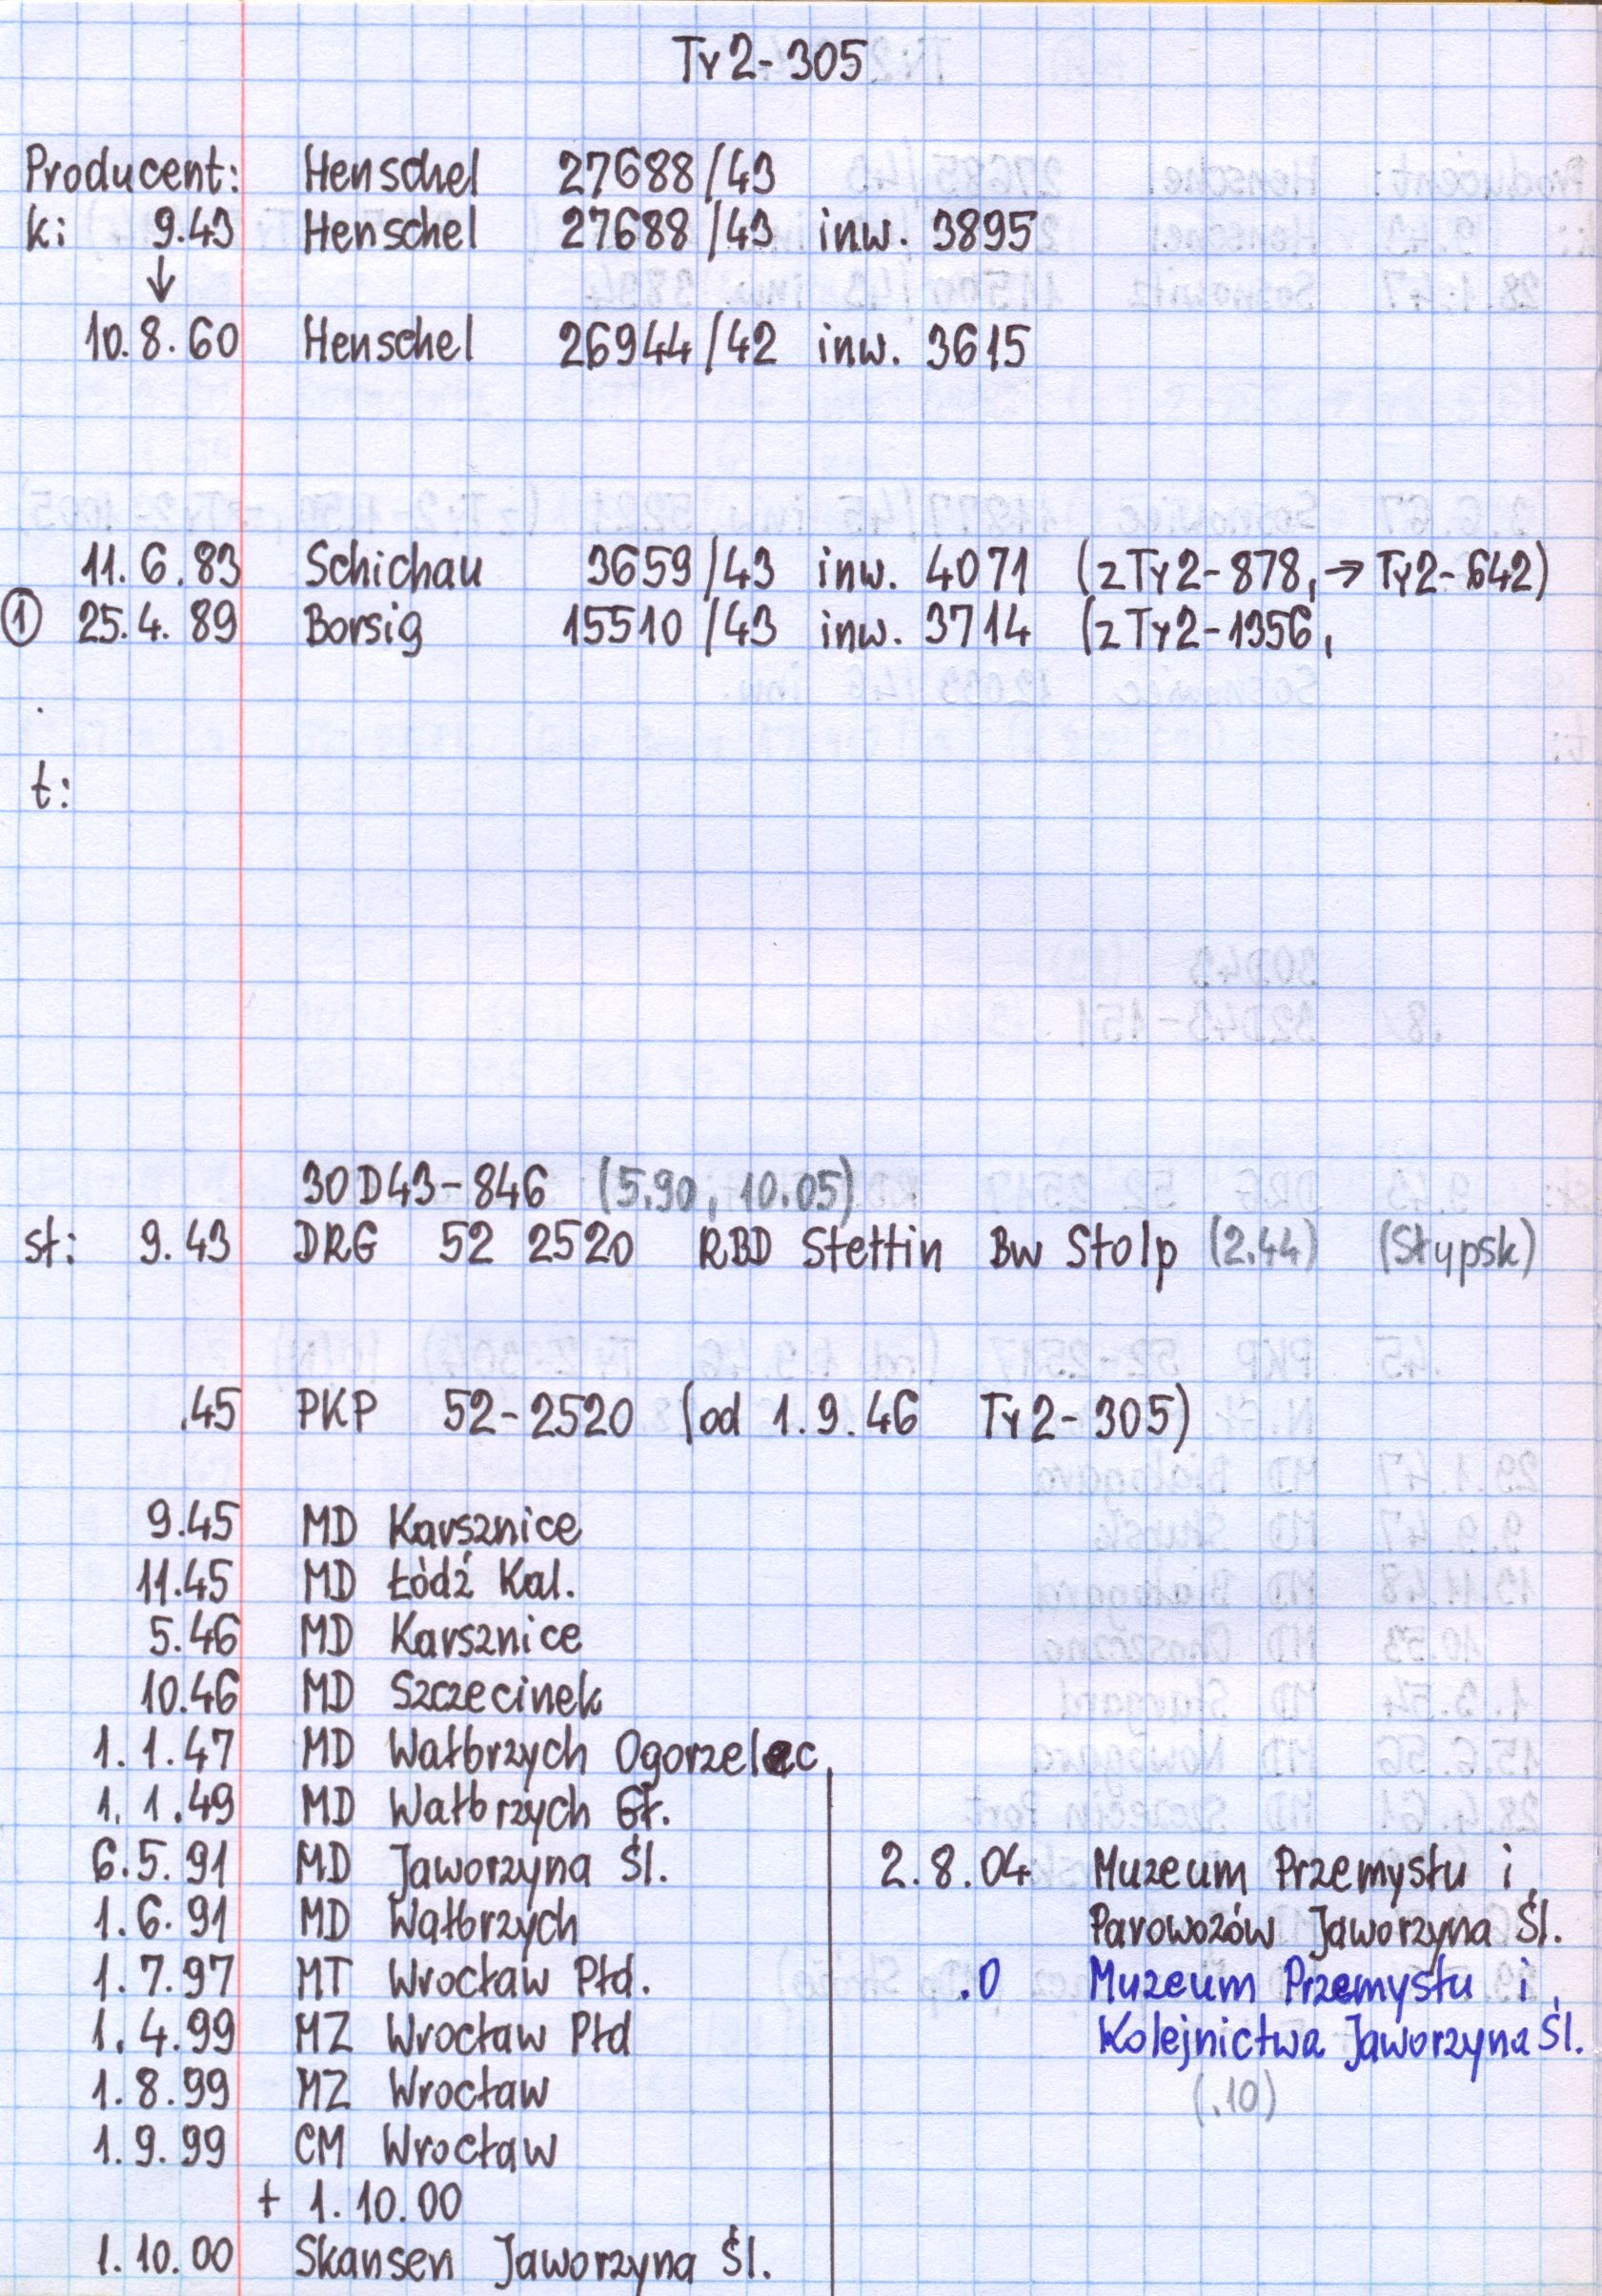 Ty2-305
Producent: Henschel 27688/43
k: 9.43 Henschel 27688/43 inw. 3895
↓
10.8.60 Henschel 26944/42 inw. 3615
11.6.83 Schichau 3659/43 inw. 4071 (z Ty2-878, → Ty2-642)
① 25.4.89 Borsig 15510/43 inw. 3714 (z Ty2-1356,
t:
30D43-846 (5.90, 10.05)
st: 9.43 DRG 52 2520 RBD Stettin Bw Stolp (2.44) (Słupsk)
.45 PKP 52-2520 (od 1.9.46 Ty2-305)
9.45 MD Karsznice
11.45 MD Łódź Kal.
5.46 MD Karsznice
10.46 MD Szczecinek
1.1.47 MD Wałbrzych Ogorzelec
1.1.49 MD Wałbrzych Gł.
6.5.91 MD Jaworzyna Śl.
1.6.91 MD Wałbrzych
1.7.97 MT Wrocław Płd.
1.4.99 MZ Wrocław Płd
1.8.99 MZ Wrocław
1.9.99 CM Wrocław
+ 1.10.00
1.10.00 Skansen Jaworzyna Śl.
2.8.04 Muzeum Przemysłu i
Parowozów Jaworzyna Śl.
.0 Muzeum Przemysłu i
Kolejnictwa Jaworzyna Śl.
(.10)